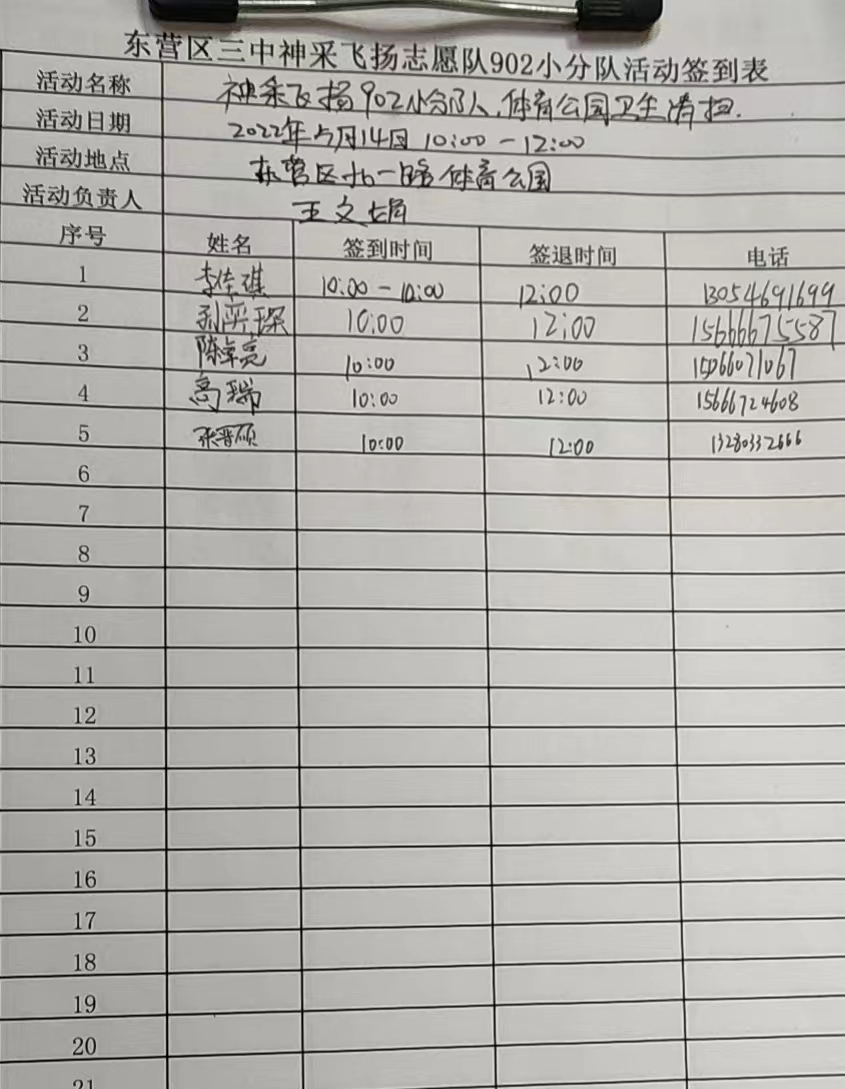 东营区三中神采飞扬志愿队902小分队活动签到表
活动名称 神采飞扬902小分队,体育公园卫生清扫.
活动日期 2022年5月14日 10:00-12:00
活动地点 东营区北一路体育公园
活动负责人 王文娟
序号 姓名 签到时间 签退时间 电话
1 李佳琪 10:00-10:00 12:00 13054691699
2 刘奕琛 10:00 12:00 15666675587
3 陈卓亮 10:00 12:00 15066071067
4 高瑞 10:00 12:00 15666724608
5 张晋硕 10:00 12:00 13280332666
6
7
8
9
10
11
12
13
14
15
16
17
18
19
20
21